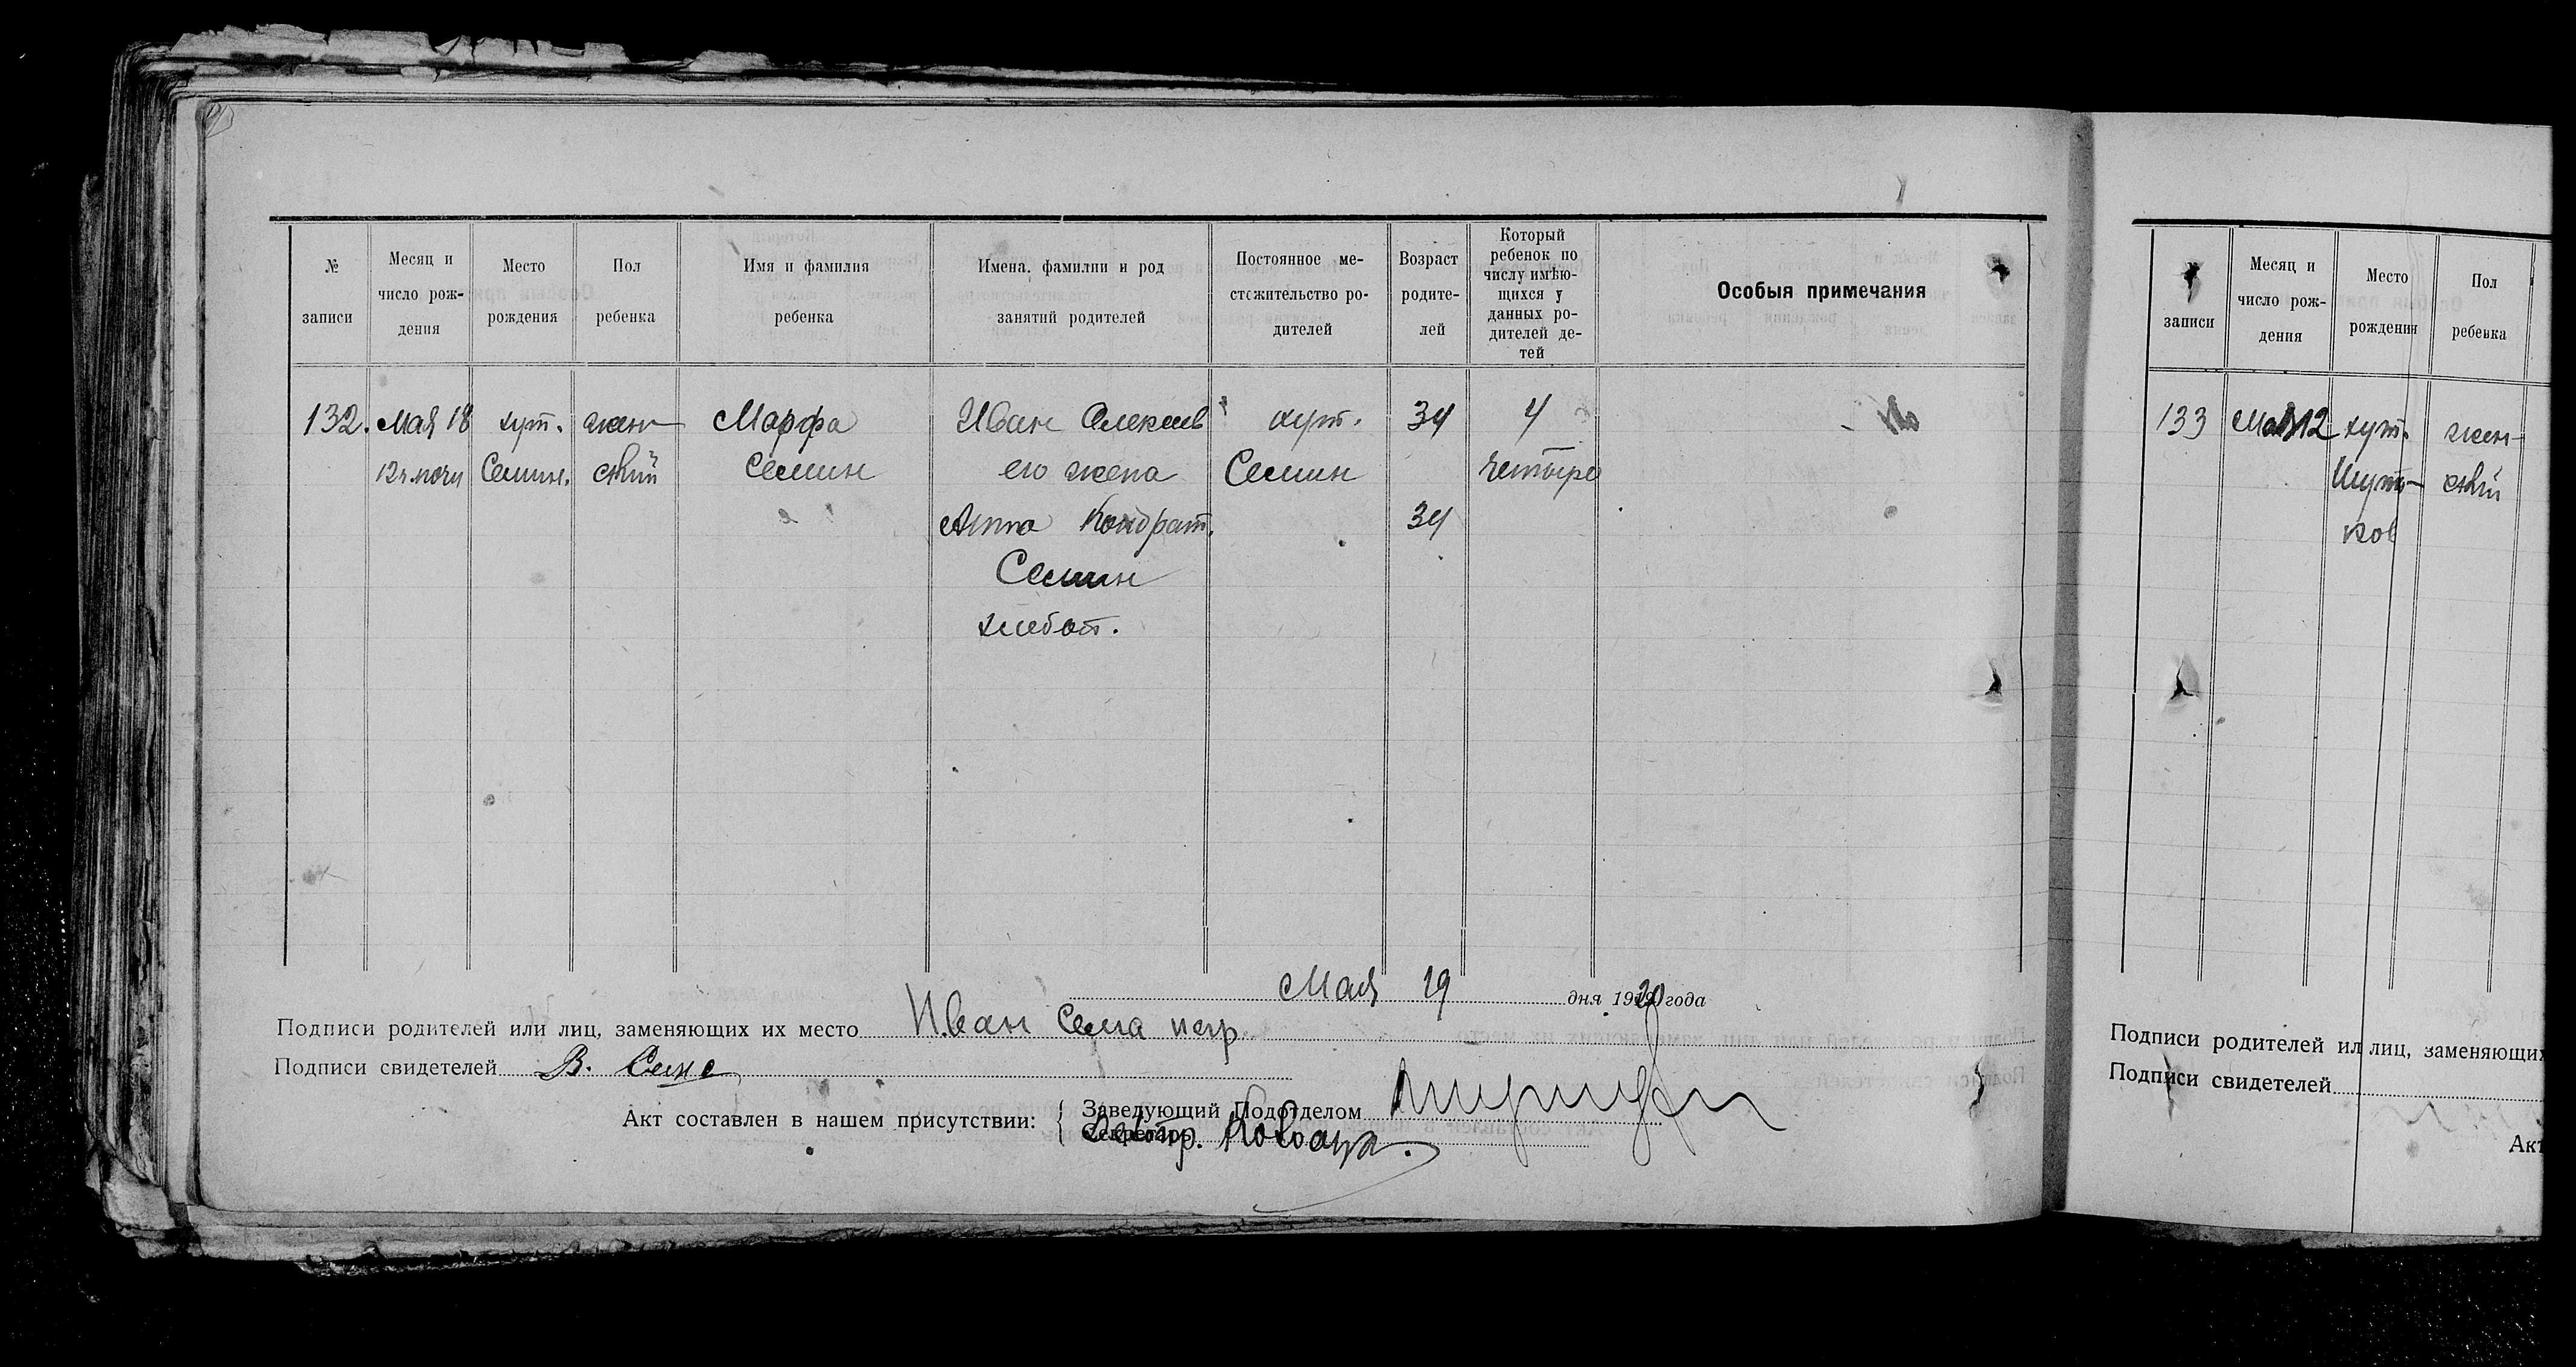 № записи
Месяц и число рож-дения
Место рождения
Пол ребенка
Имя и фамилия ребенка
Имена, фамилии и род занятий родителей
Постоянное ме-стожительство ро-дителей
Возраст родите-лей
Который ребенок по числу имѣю-щихся у данных ро-дителей де-тей
Особыя примечания
132. Мая 18 хут. жен- Марфа Иван Алексеев хут. 34 4
12 ч. ночи Семин. ский Семин его жена Семин четыре
Анна Кондрат. 34
Семин
хлебоп.
Мая 19 дня 1920 года
Подписи родителей или лиц, заменяющих их место Иван Сема негр
Подписи свидетелей В. Семе
Акт составлен в нашем присутствии:
Заведующий Подотделом
Секретарь
записи
Месяц и число рож-дения
Место рождения
Пол ребенка
133 Мая 12 хут. жен-
Шут- ский
ков
Подписи родителей ил лиц, заменяющи
Подписи свидетелей
Акт